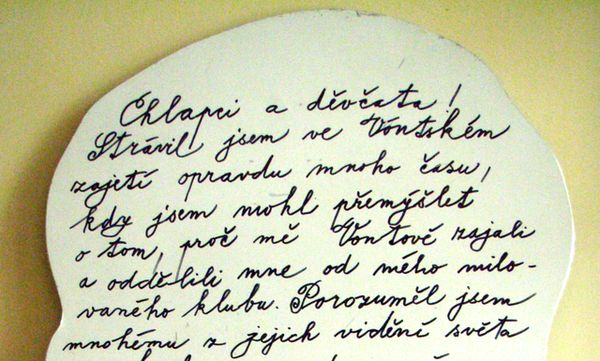 Chlapci a děvčata!
Strávil jsem ve Vontském
zajetí opravdu mnoho času,
kdy jsem mohl přemýšlet
o tom, proč mě Vontové zajali
a oddělili mne od mého milo-
vaného klubu. Porozuměl jsem
mnohému z jejich vidění světa